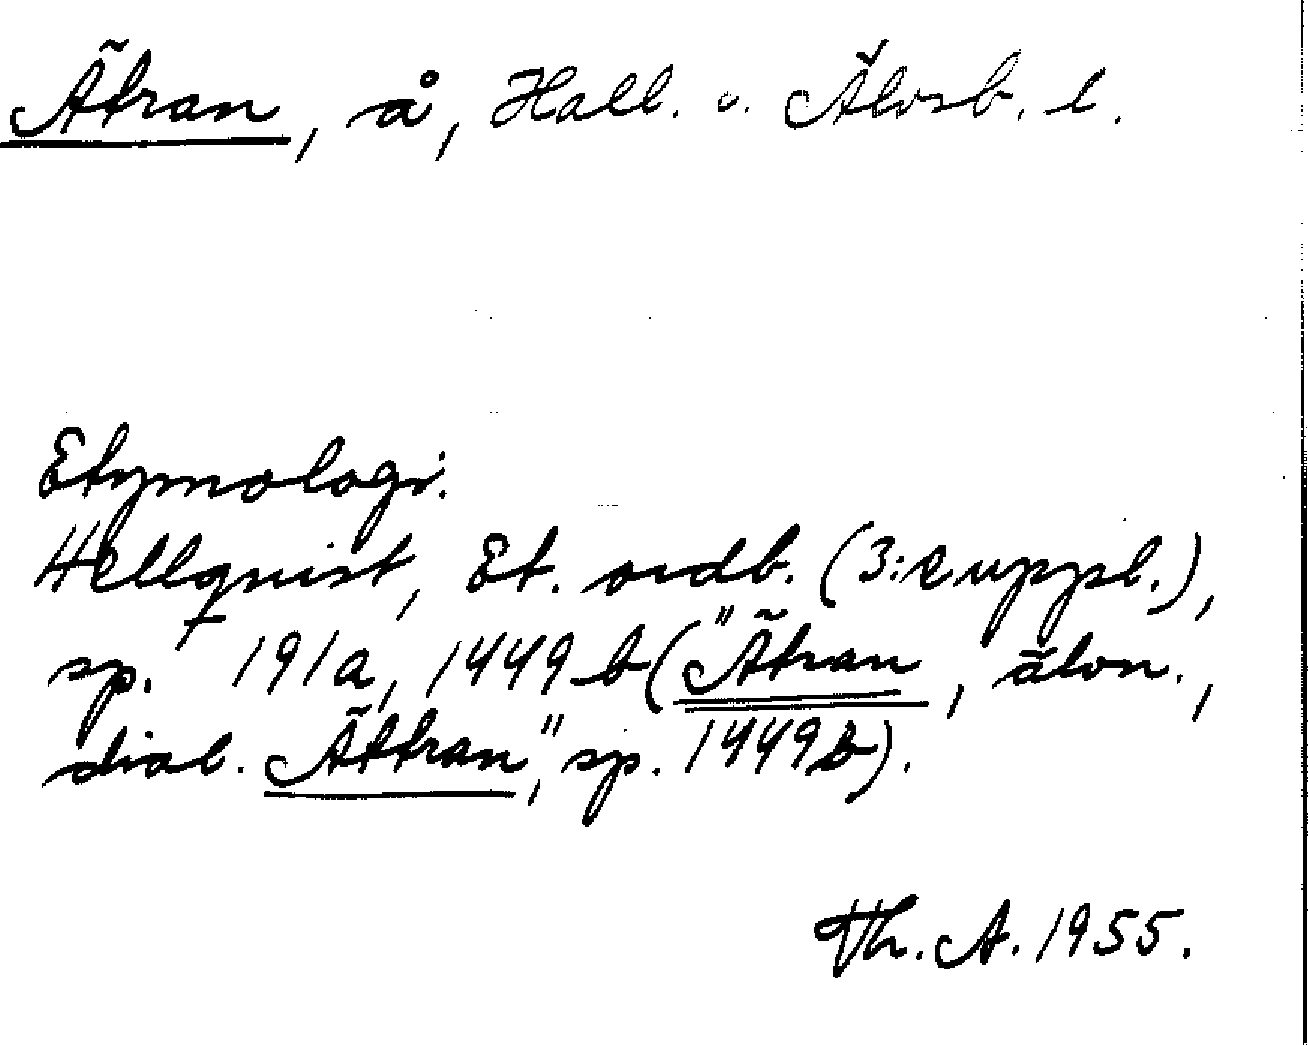 Ätran, å, Hall. o. Älvsb. l.
Etymologi.
Hellquist, Et. ordb. (3:e uppl.),
sp. 191a, 1449 b ("Ätran, älvn.,
dial. Ättran", sp. 1449b).
Th. A. 1955.